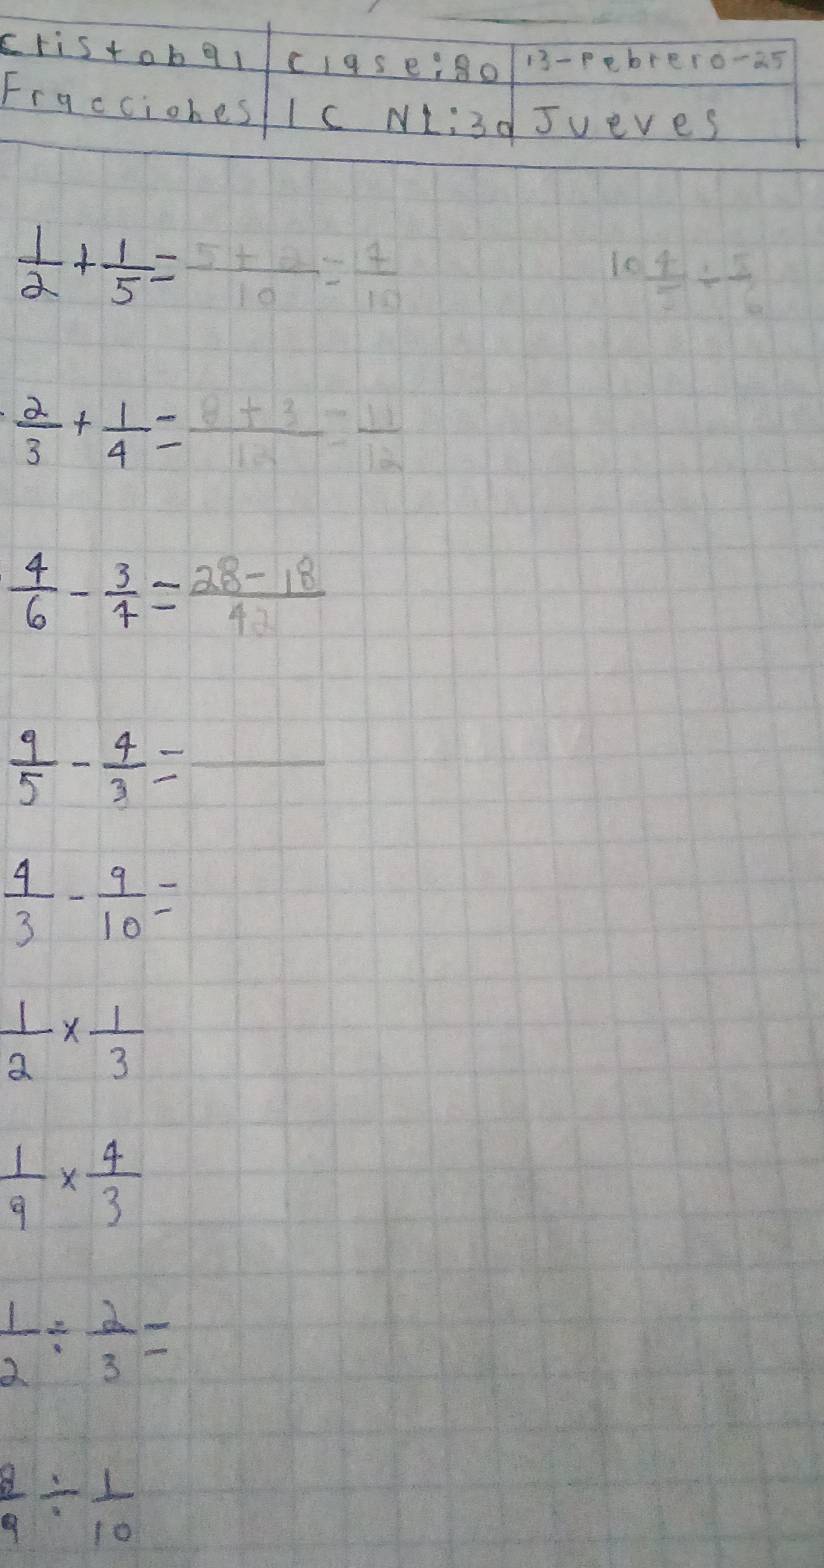 Cristobal Clase:80 13-Febrero-25
Fracciones 1C NL:30 Jueves
1/2 + 1/5 = 5+2/10 = 7/10
2/3 + 1/4 = 8+3/12 = 11/12
4/6 - 3/7 = 28-18/42
9/5 - 4/3 =
4/3 - 9/10 =
1/2 x 1/3
1/9 x 4/3
1/2 ÷ 2/3 =
8/9 ÷ 1/10